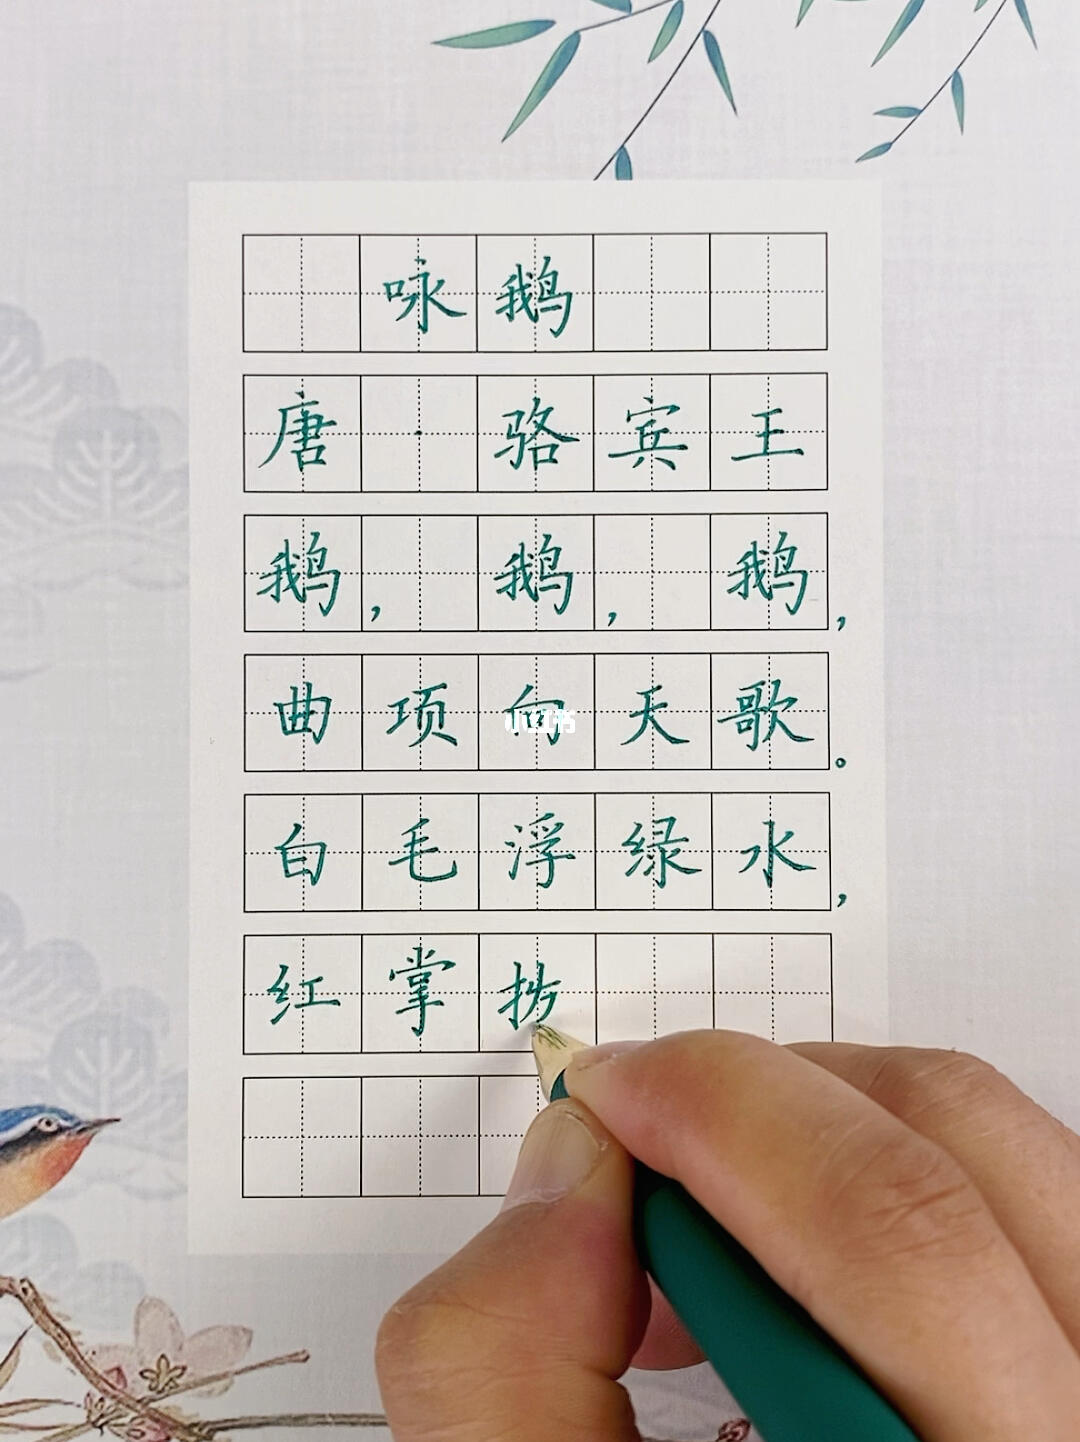 咏鹅
唐·骆宾王
鹅，鹅，鹅，
曲项向天歌。
小红书
白毛浮绿水，
红掌